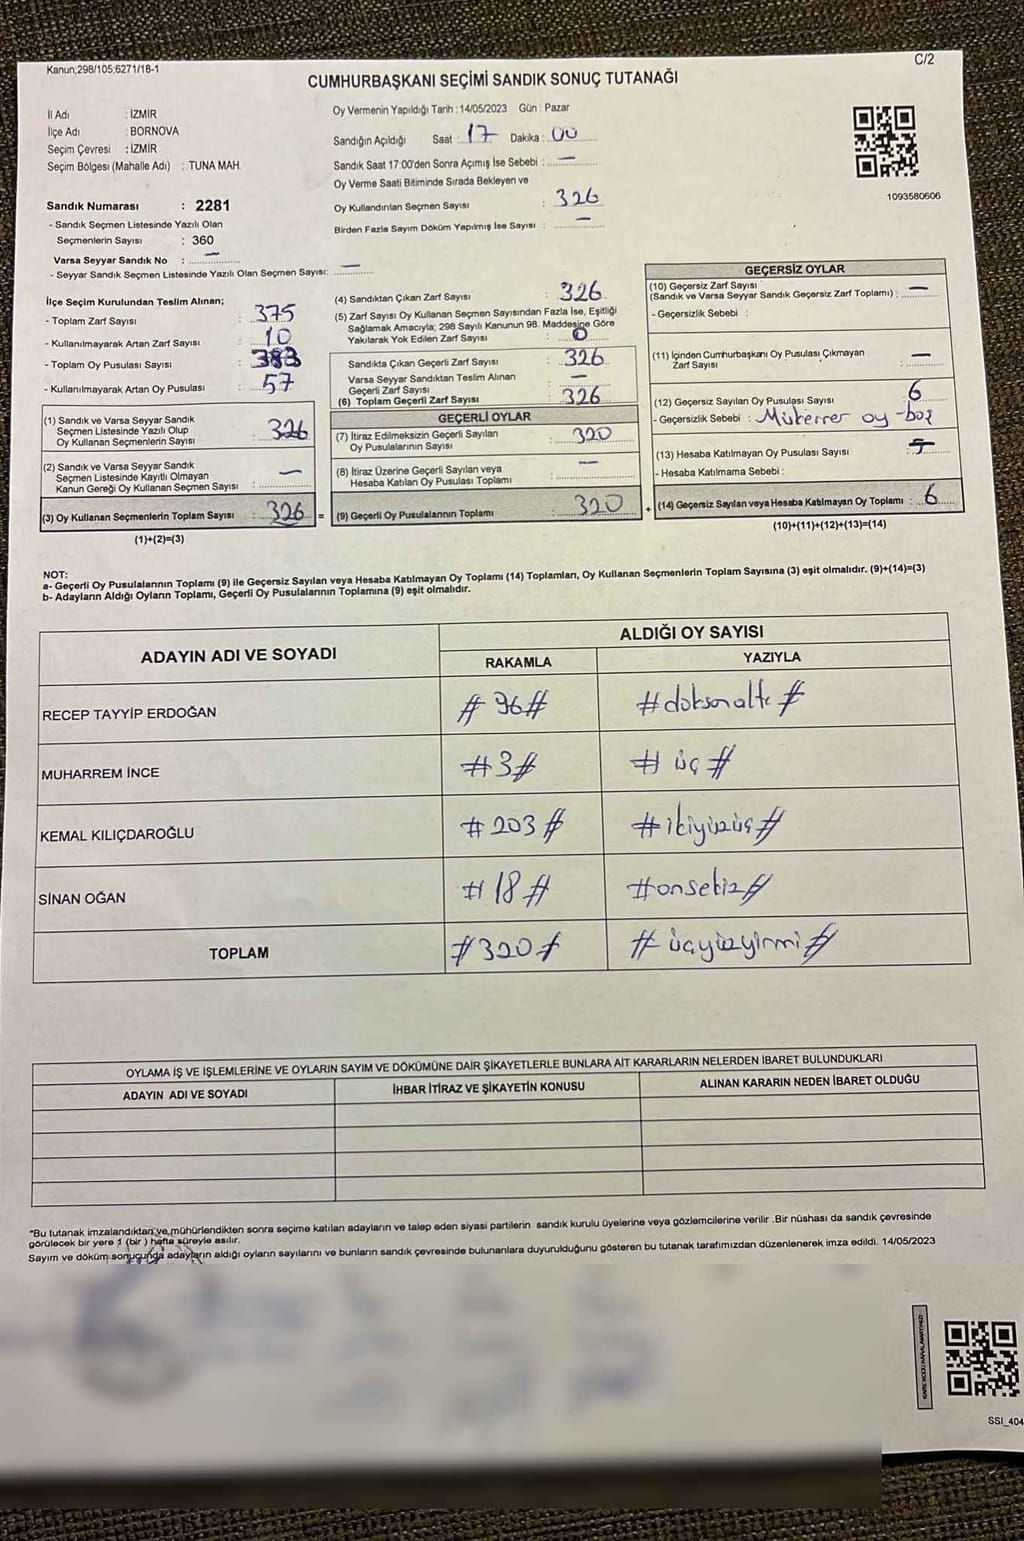 Kanun;298/105;6271/18-1
C/2
CUMHURBAŞKANI SEÇİMİ SANDIK SONUÇ TUTANAĞI
İl Adı : İZMİR
İlçe Adı : BORNOVA
Seçim Çevresi : İZMİR
Seçim Bölgesi (Mahalle Adı) : TUNA MAH.
Sandık Numarası : 2281
- Sandık Seçmen Listesinde Yazılı Olan
Seçmenlerin Sayısı : 360
Varsa Seyyar Sandık No : —
- Seyyar Sandık Seçmen Listesinde Yazılı Olan Seçmen Sayısı: —
Oy Vermenin Yapıldığı Tarih : 14/05/2023 Gün : Pazar
Sandığın Açıldığı Saat : 17 Dakika : 00
Sandık Saat 17:00'den Sonra Açımış İse Sebebi : —
Oy Verme Saati Bitiminde Sırada Bekleyen ve
Oy Kullandırılan Seçmen Sayısı : 326
Birden Fazla Sayım Döküm Yapılmış İse Sayısı : —
1093580606
İlçe Seçim Kurulundan Teslim Alınan;
- Toplam Zarf Sayısı : 375
- Kullanılmayarak Artan Zarf Sayısı : 10
- Toplam Oy Pusulası Sayısı : 383
- Kullanılmayarak Artan Oy Pusulası : 57
(1) Sandık ve Varsa Seyyar Sandık
Seçmen Listesinde Yazılı Olup
Oy Kullanan Seçmenlerin Sayısı : 326
(2) Sandık ve Varsa Seyyar Sandık
Seçmen Listesinde Kayıtlı Olmayan
Kanun Gereği Oy Kullanan Seçmen Sayısı : —
(3) Oy Kullanan Seçmenlerin Toplam Sayısı : 326 =
(1)+(2)=(3)
(4) Sandıktan Çıkan Zarf Sayısı : 326
(5) Zarf Sayısı Oy Kullanan Seçmen Sayısından Fazla İse, Eşitliği
Sağlamak Amacıyla; 298 Sayılı Kanunun 98. Maddesine Göre
Yakılarak Yok Edilen Zarf Sayısı : 0
Sandıkta Çıkan Geçerli Zarf Sayısı : 326
Varsa Seyyar Sandıktan Teslim Alınan
Geçerli Zarf Sayısı : —
(6) Toplam Geçerli Zarf Sayısı : 326
GEÇERLİ OYLAR
(7) İtiraz Edilmeksizin Geçerli Sayılan
Oy Pusulalarının Sayısı : 320
(8) İtiraz Üzerine Geçerli Sayılan veya
Hesaba Katılan Oy Pusulası Toplamı : —
(9) Geçerli Oy Pusulalarının Toplamı : 320 +
GEÇERSİZ OYLAR
(10) Geçersiz Zarf Sayısı
(Sandık ve Varsa Seyyar Sandık Geçersiz Zarf Toplamı) : —
- Geçersizlik Sebebi :
(11) İçinden Cumhurbaşkanı Oy Pusulası Çıkmayan
Zarf Sayısı : —
(12) Geçersiz Sayılan Oy Pusulası Sayısı : 6
- Geçersizlik Sebebi : Mükerrer oy - boş
(13) Hesaba Katılmayan Oy Pusulası Sayısı :
- Hesaba Katılmama Sebebi :
(14) Geçersiz Sayılan veya Hesaba Katılmayan Oy Toplamı : 6
(10)+(11)+(12)+(13)=(14)
NOT:
a- Geçerli Oy Pusulalarının Toplamı (9) ile Geçersiz Sayılan veya Hesaba Katılmayan Oy Toplamı (14) Toplamları, Oy Kullanan Seçmenlerin Toplam Sayısına (3) eşit olmalıdır. (9)+(14)=(3)
b- Adayların Aldığı Oyların Toplamı, Geçerli Oy Pusulalarının Toplamına (9) eşit olmalıdır.
ADAYIN ADI VE SOYADI
ALDIĞI OY SAYISI
RAKAMLA YAZIYLA
RECEP TAYYİP ERDOĞAN # 96 # # doksanaltı #
MUHARREM İNCE # 3 # # üç #
KEMAL KILIÇDAROĞLU # 203 # # ikiyüzüç #
SİNAN OĞAN # 18 # # onsekiz #
TOPLAM # 320 # # üçyüzyirmi #
OYLAMA İŞ VE İŞLEMLERİNE VE OYLARIN SAYIM VE DÖKÜMÜNE DAİR ŞİKAYETLERLE BUNLARA AİT KARARLARIN NELERDEN İBARET BULUNDUKLARI
ADAYIN ADI VE SOYADI İHBAR İTİRAZ VE ŞİKAYETİN KONUSU ALINAN KARARIN NEDEN İBARET OLDUĞU
*Bu tutanak imzalandıktan ve mühürlendikten sonra seçime katılan adayların ve talep eden siyasi partilerin sandık kurulu üyelerine veya gözlemcilerine verilir .Bir nüshası da sandık çevresinde
görülecek bir yere 1 (bir ) hafta süreyle asılır.
Sayım ve döküm sonucunda adayların aldığı oyların sayılarını ve bunların sandık çevresinde bulunanlara duyurulduğunu gösteren bu tutanak tarafımızdan düzenlenerek imza edildi. 14/05/2023
SSI_404